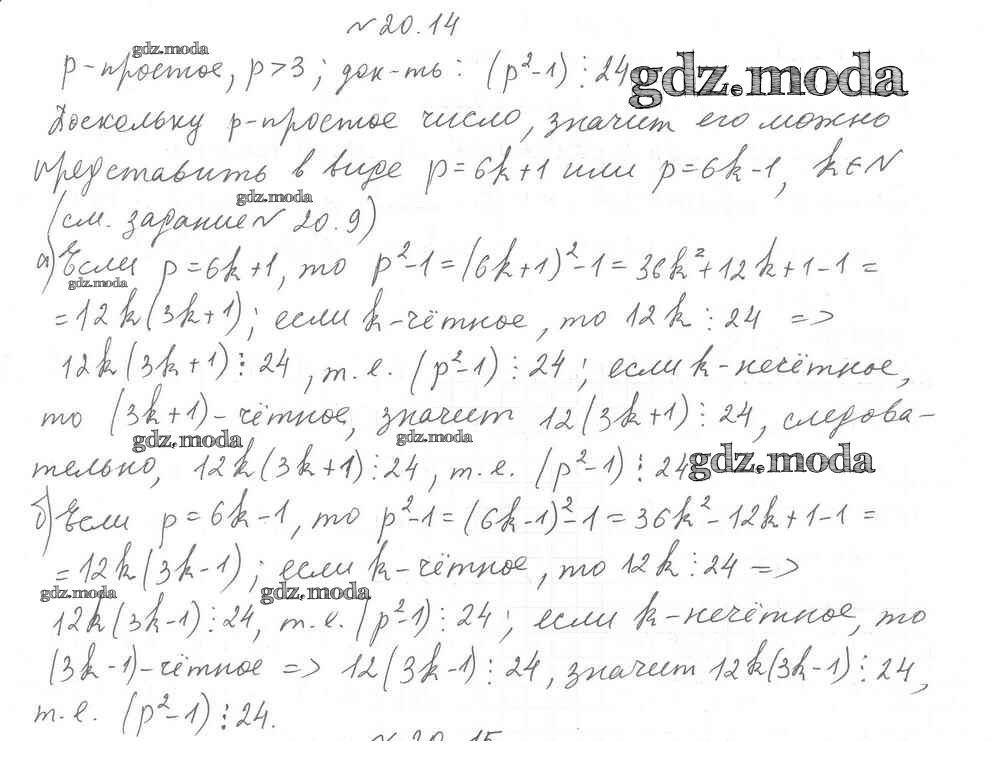 № 20.14
gdz.moda
p - простое, p > 3; док-ть: (p²-1) ⋮ 24
gdz.moda
Поскольку p - простое число, значит его можно
представить в виде p = 6k+1 или p = 6k-1, k∈N
gdz.moda
(см. задание № 20.9)
а) Если p = 6k+1, то p²-1 = (6k+1)²-1 = 36k²+12k+1-1 =
gdz.moda
= 12k(3k+1); если k - чётное, то 12k ⋮ 24 =>
12k(3k+1) ⋮ 24, т.е. (p²-1) ⋮ 24; если k - нечётное,
то (3k+1) - чётное, значит 12(3k+1) ⋮ 24, следова-
gdz.moda gdz.moda
тельно, 12k(3k+1) ⋮ 24, т.е. (p²-1) ⋮ 24
gdz.moda
б) Если p = 6k-1, то p²-1 = (6k-1)²-1 = 36k²-12k+1-1 =
= 12k(3k-1); если k - чётное, то 12k ⋮ 24 =>
gdz.moda gdz.moda
12k(3k-1) ⋮ 24, т.е. (p²-1) ⋮ 24; если k - нечётное, то
(3k-1) - чётное => 12(3k-1) ⋮ 24, значит 12k(3k-1) ⋮ 24,
т.е. (p²-1) ⋮ 24.
№ 20.15